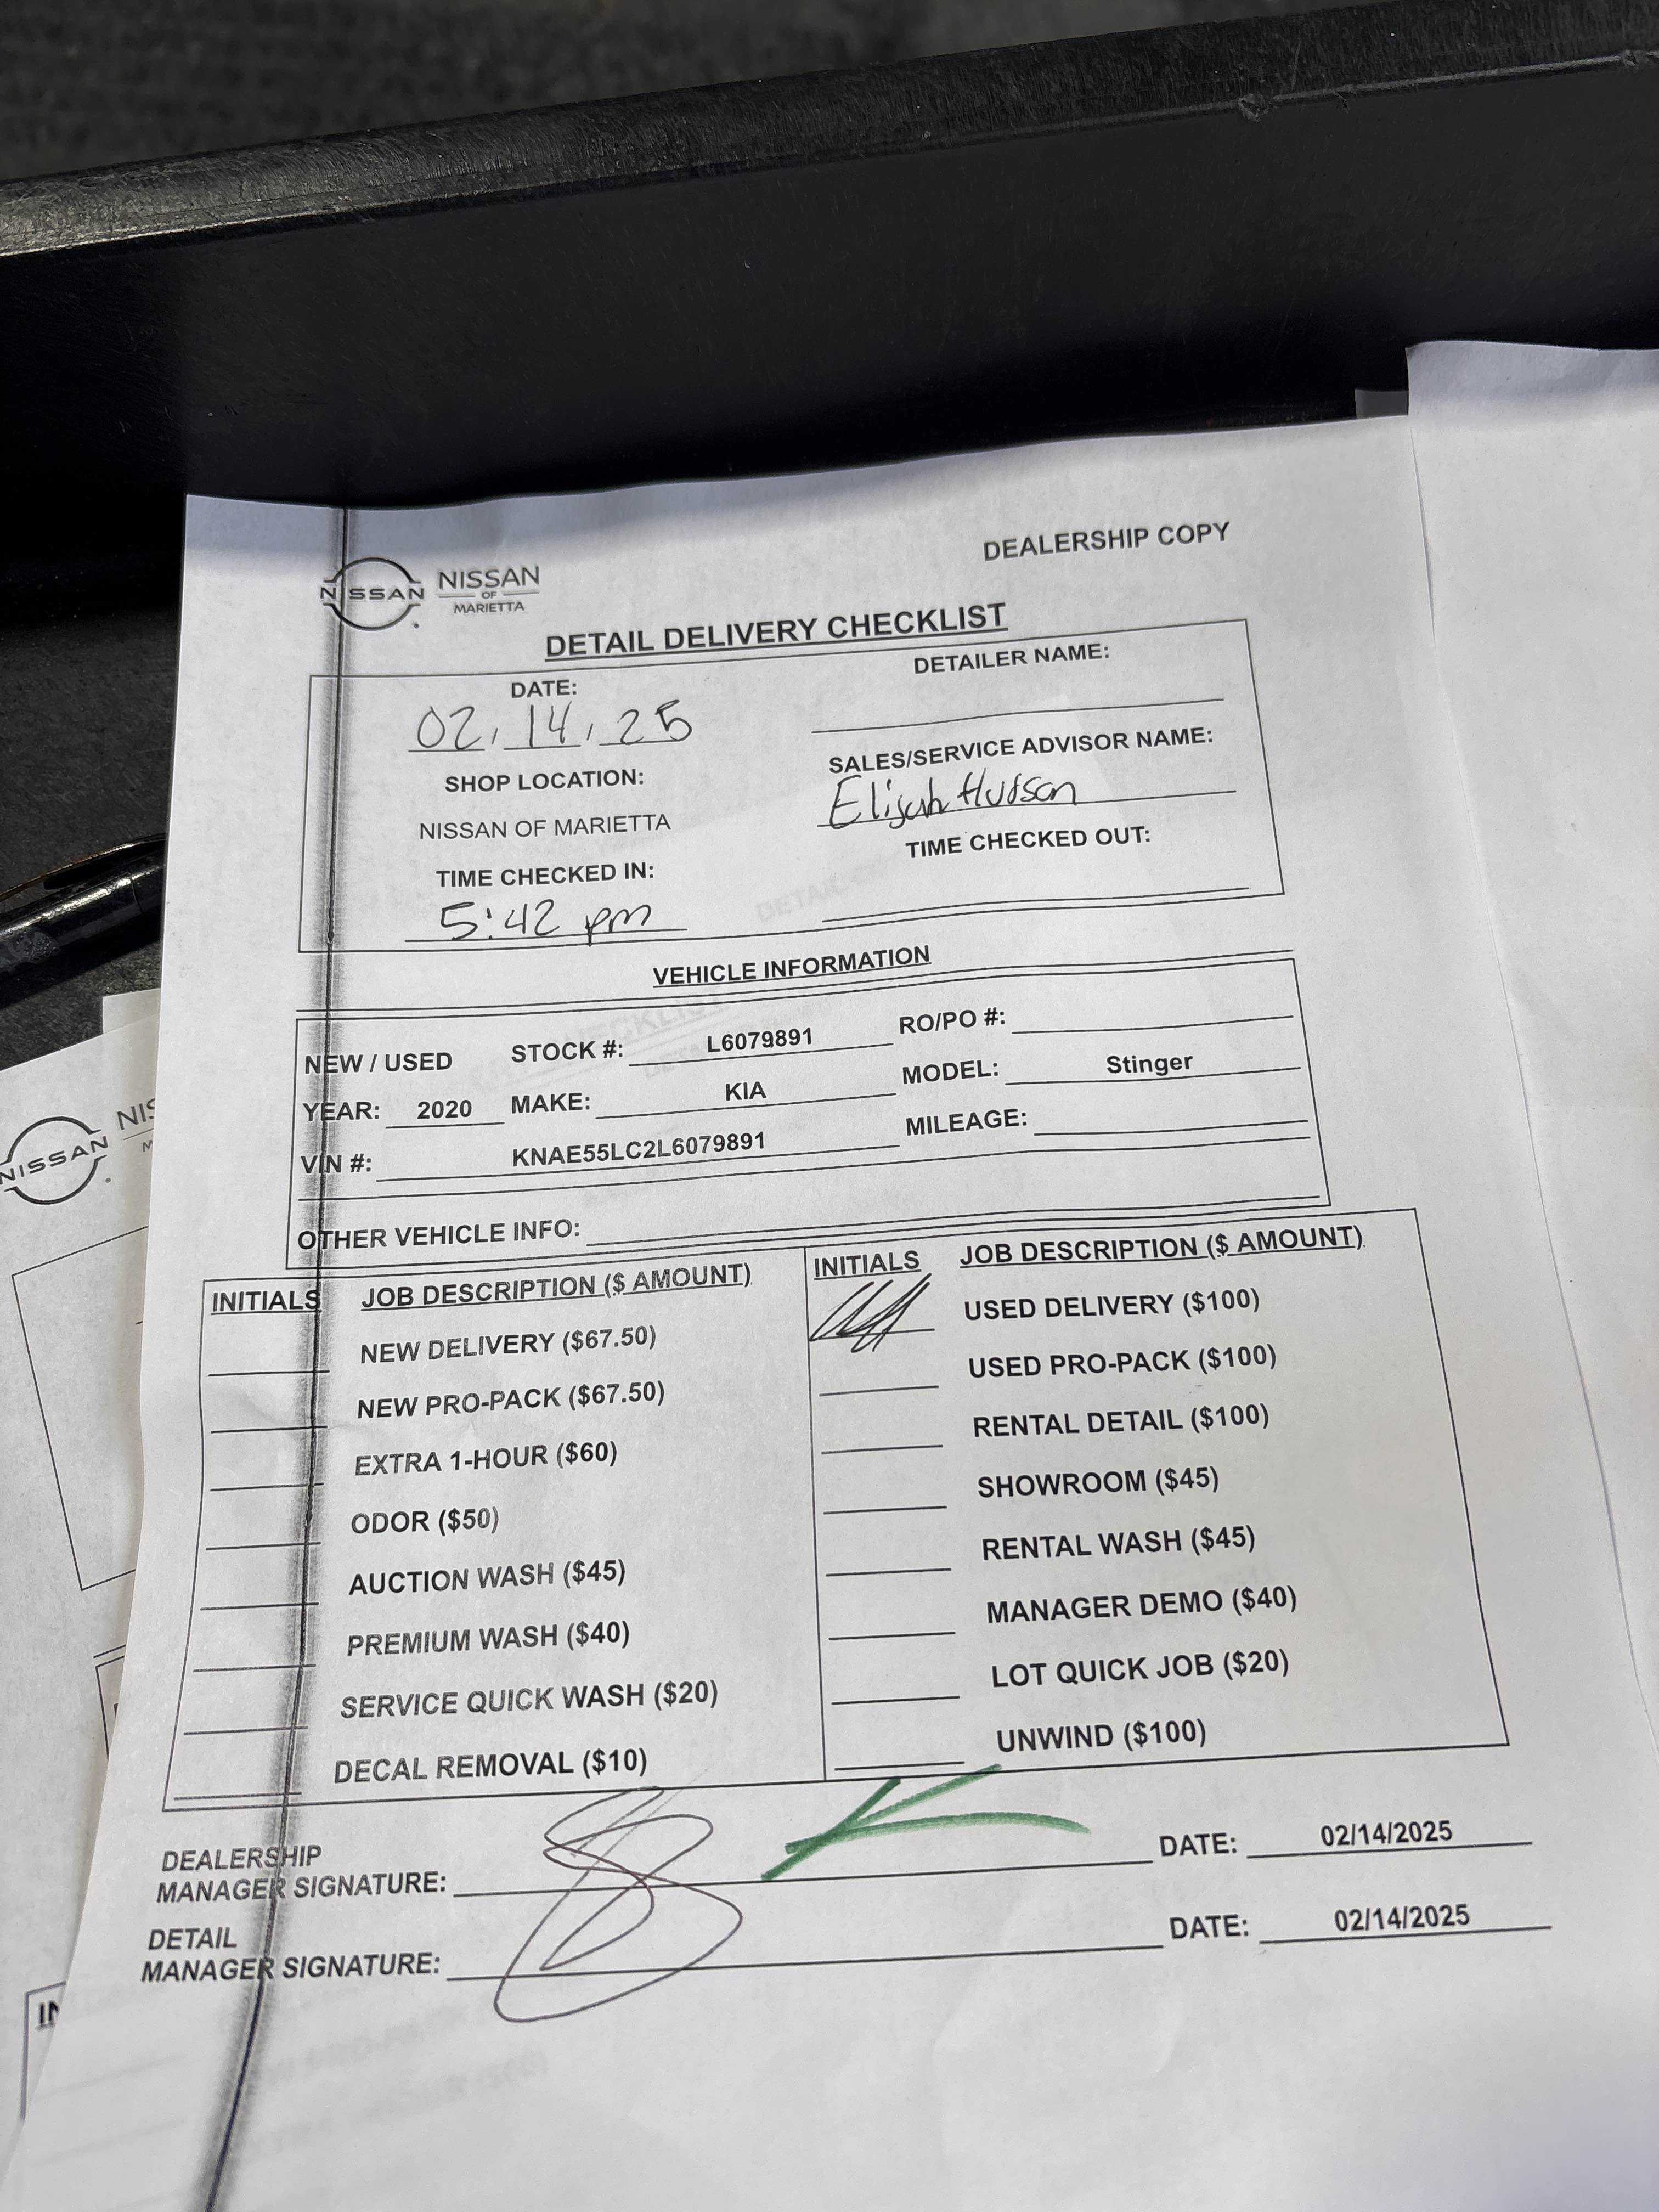 DEALERSHIP COPY
NISSAN NISSAN
OF
MARIETTA
DETAIL DELIVERY CHECKLIST
DATE:
02, 14, 25
SHOP LOCATION:
NISSAN OF MARIETTA
TIME CHECKED IN:
5:42 pm
DETAILER NAME:
SALES/SERVICE ADVISOR NAME:
Elijah Hudson
TIME CHECKED OUT:
VEHICLE INFORMATION
NEW / USED STOCK #: L6079891 RO/PO #:
YEAR: 2020 MAKE: KIA MODEL: Stinger
VIN #: KNAE55LC2L6079891 MILEAGE:
OTHER VEHICLE INFO:
INITIALS JOB DESCRIPTION ($ AMOUNT)
NEW DELIVERY ($67.50)
NEW PRO-PACK ($67.50)
EXTRA 1-HOUR ($60)
ODOR ($50)
AUCTION WASH ($45)
PREMIUM WASH ($40)
SERVICE QUICK WASH ($20)
DECAL REMOVAL ($10)
INITIALS JOB DESCRIPTION ($ AMOUNT)
USED DELIVERY ($100)
USED PRO-PACK ($100)
RENTAL DETAIL ($100)
SHOWROOM ($45)
RENTAL WASH ($45)
MANAGER DEMO ($40)
LOT QUICK JOB ($20)
UNWIND ($100)
DEALERSHIP
MANAGER SIGNATURE: DATE: 02/14/2025
DETAIL
MANAGER SIGNATURE: DATE: 02/14/2025
NISSAN NIS